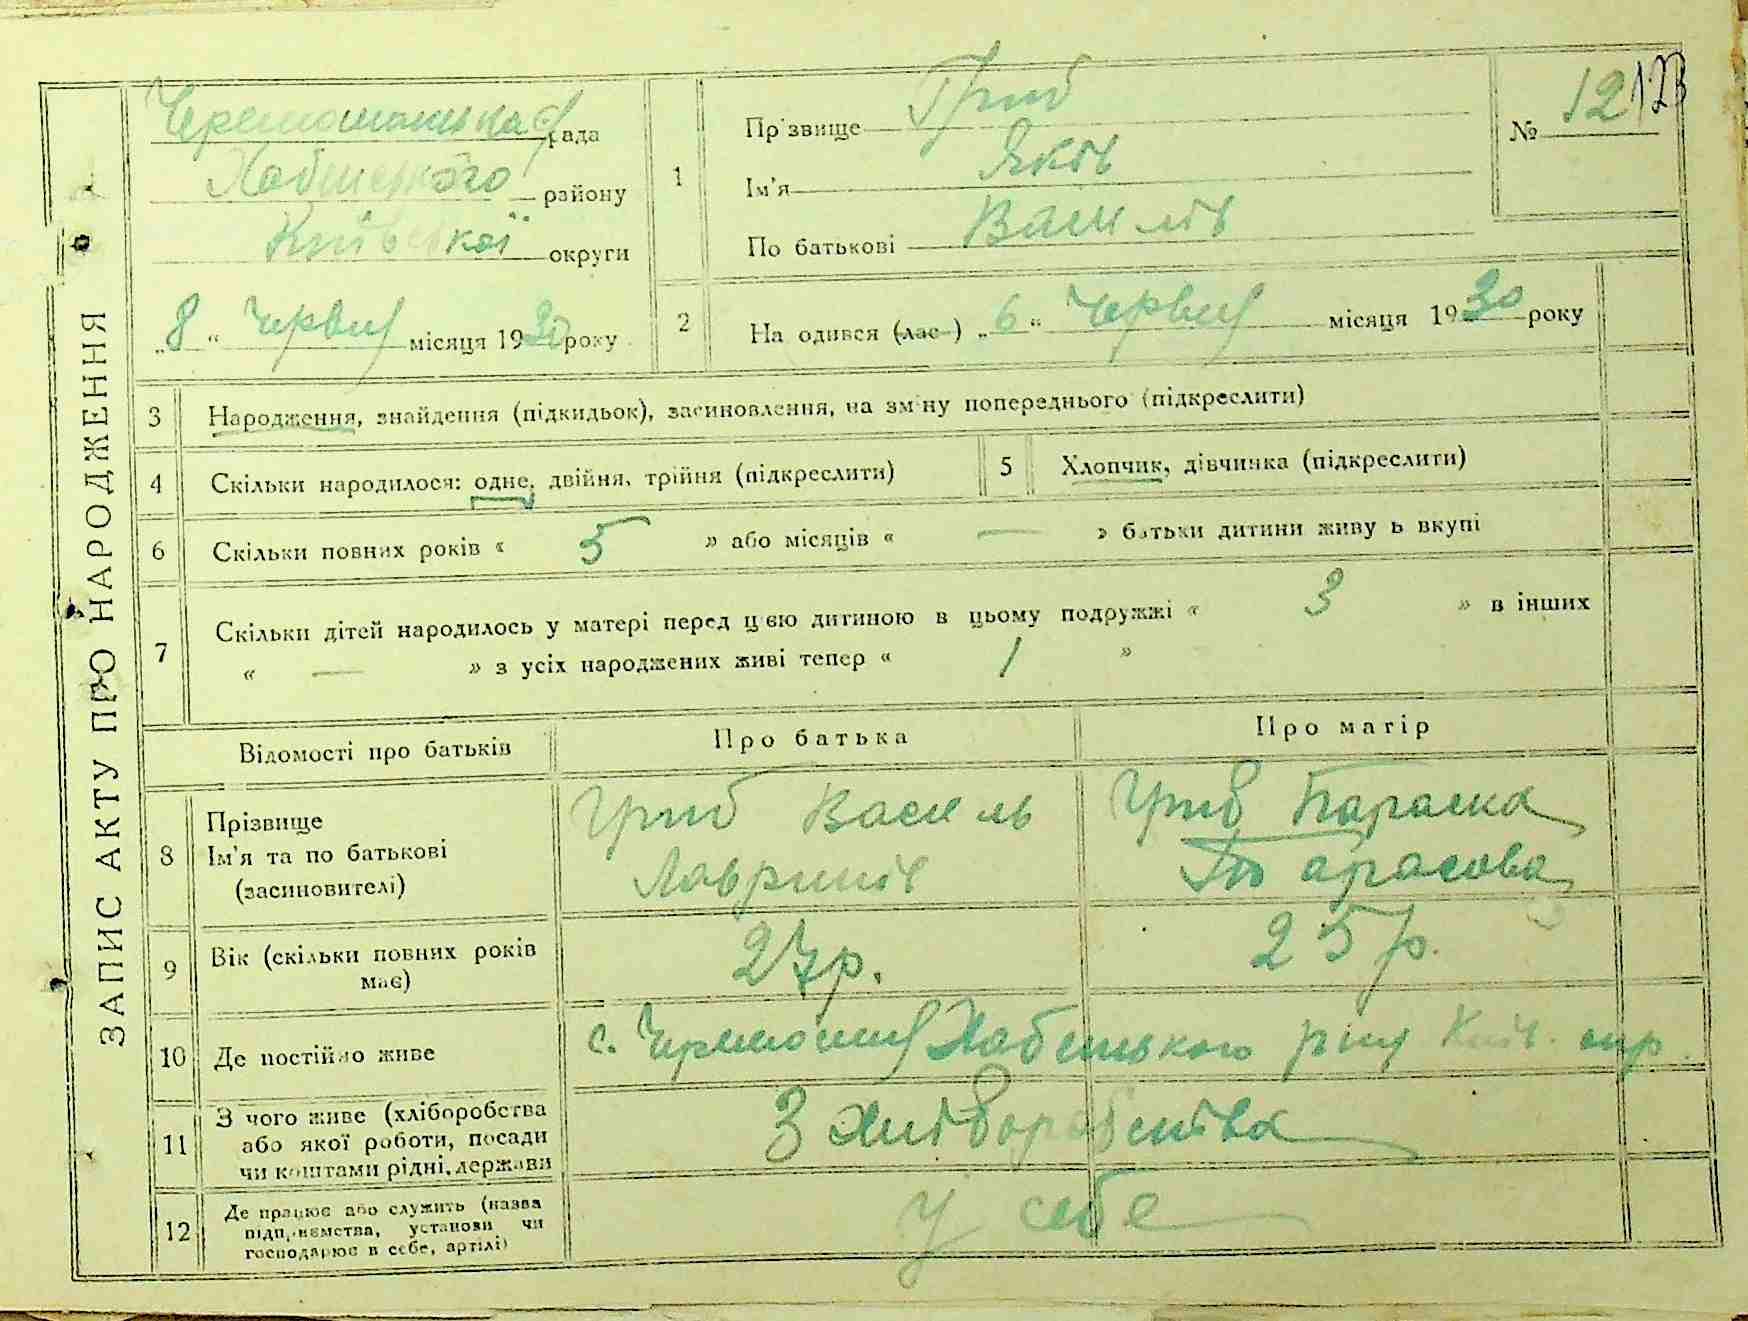 ЗАПИС АКТУ ПРО НАРОДЖЕННЯ
Черемошнянська рада
Хабенського району
Київської округи
„8“ Червня місяця 1930 року
1
Прізвище Гриб
Ім'я Яків
По батькові Василів
№ 12
173
2
На одився (лас-) „6“ Червня місяця 1930 року
3 Народження, знайдення (підкидьок), засиновлення, на зміну попереднього (підкреслити)
4 Скільки народилося: одне, двійня, трійня (підкреслити)
5 Хлопчик, дівчинка (підкреслити)
6 Скільки повних років « 5 » або місяців « — » батьки дитини живуть вкупі
7 Скільки дітей народилось у матері перед цією дитиною в цьому подружжі « 3 » в інших
« — » з усіх народжених живі тепер « 1 »
Відомості про батьків
Про батька
Про матір
8 Прізвище
Ім'я та по батькові
(засиновителі)
Гриб Василь
Лавринів
Гриб Параска
Тарасова
9 Вік (скільки повних років
має)
27 р.
25 р.
10 Де постійно живе
с. Черемошня Хабенського р-ну Київ. окр.
11 З чого живе (хліборобства
або якої роботи, посади
чи коштами рідні, держави
З Хліборобства
12 Де працює або служить (назва
підприємства, установи чи
господарює в себе, артілі)
У себе